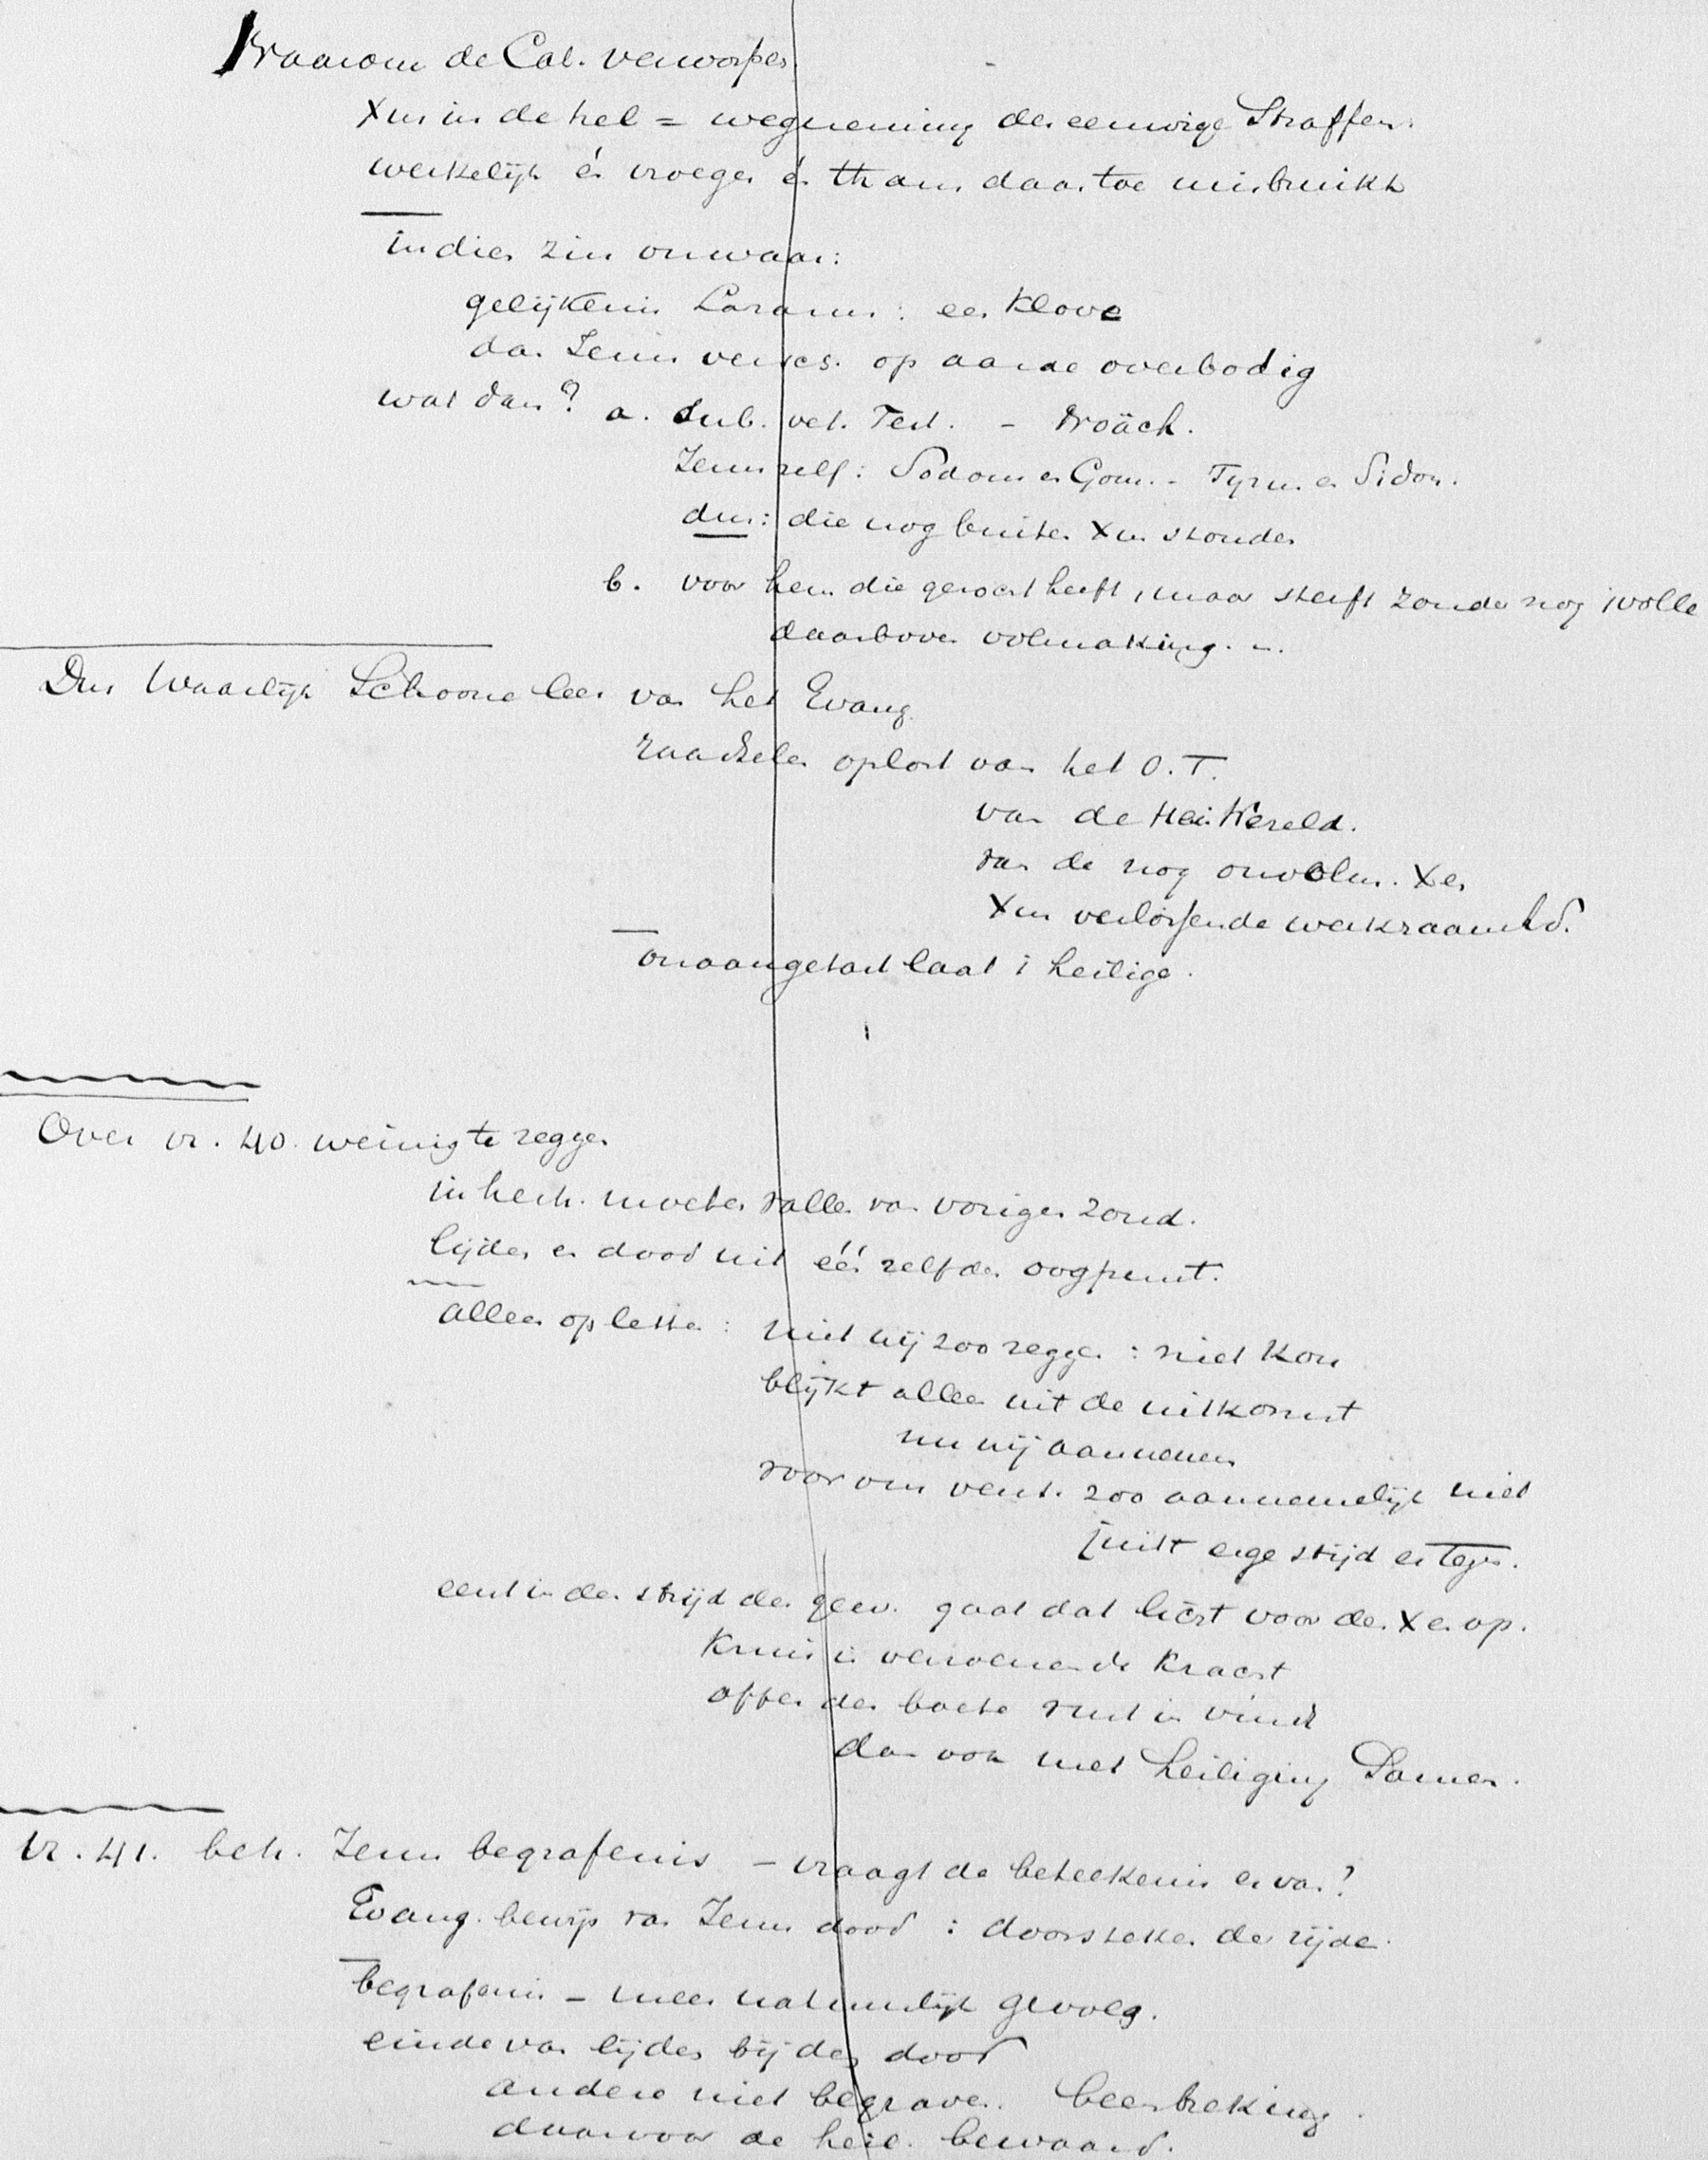 Waarom de Cat. verworpen
Xus in de hel = wegneming der eeuwige Straffen.
werkelijk én vroeger én thans daartoe misbruikt
in dien zin onwaar:
gelijkenis Lazarus: een Klove
dan Jezus versch. op aarde overbodig
wat dan? a. sub. vet. Test. - Noäch.
Jezus zelf: Sodom en Gom. - Tyrus en Sidon.
dus: die nog buiten Xus stonden
b. voor hem die gezocht heeft, maar sterft zonder nog
daarboven volmaking.
Dus Waarlijk Schoone leer van het Evang.
raadselen oplost van het O.T.
van de Hei. Wereld.
van de nog onvolm. Xen
Xus verlossende werkzaamhd.
onaangetast laat 't heilige.
Over vr. 40. weinig te zeggen
in herh. moeten vallen van vorigen Zond.
lijden en dood uit één zelfden oogpunt.
alleen op letten: niet wij zoo zeggen: niet kon
blijkt alleen uit de uitkomst
nu wij aannemen
voor ons verst. zoo aannemelijk niet
juist enge strijd er tegen.
eerst in den strijd der gew. gaat dat licht voor den Xen op.
Kruis is verzoenende Kracht
offer der boete rust in vindt
dan ook met heiliging Samen.
Vr. 41. beh. Jezus begrafenis - vraagt de beteekenis er van?
Evang. bewijs van Jezus dood: doorsteken der zijde.
begrafenis - meer natuurlijk gevolg.
einde van lijden bij den dood
andere niet begraven. beenbreking.
daarvoor de heil. bewaard.